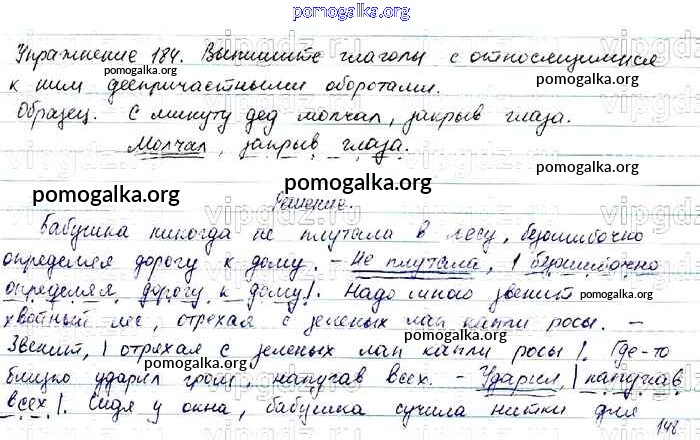 pomogalka.org
Упражнение 184. Выпишите глаголы с относящимися
к ним деепричастными оборотами.
Образец. С минуту дед молчал, закрыв глаза.
Молчал, закрыв глаза.
Решение.
Бабушка никогда не плутала в лесу, безошибочно
определяя дорогу к дому. – Не плутала, | безошибочно
определяя дорогу к дому|. Надо мною звенит
хвойный лес, отряхая с зеленых лап капли росы. –
Звенит, | отряхая с зеленых лап капли росы|. Где-то
близко ударил гром, напугав всех. – Ударил, | напугав
всех|. Сидя у окна, бабушка сучила нитки для
148